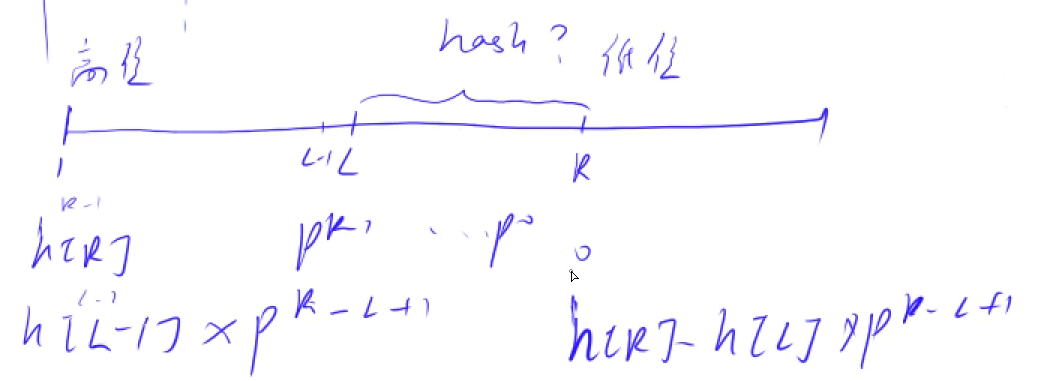 hash?
高位 低位
L-1 L R
1
R-1
h[R] p^{R-1} ...p^0 0
L-1
h[L-1]×p^{R-L+1} h[R]-h[L]×p^{R-L+1}